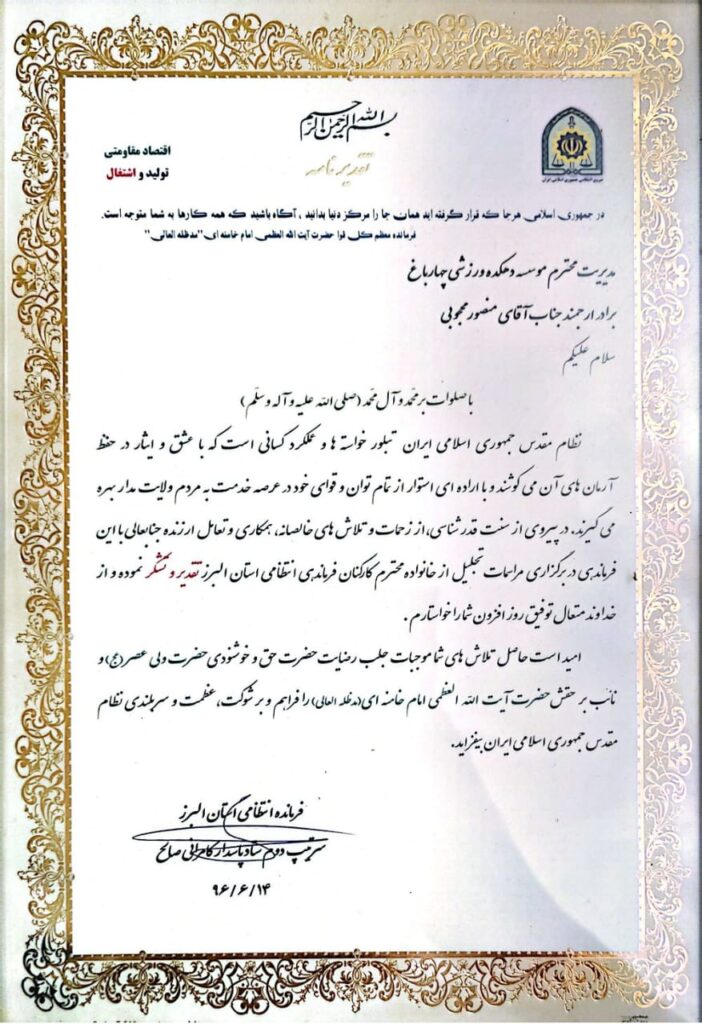 بسم الله الرحمن الرحیم
تقدیرنامه
اقتصاد مقاومتی
تولید و اشتغال
نیروی انتظامی جمهوری اسلامی ایران
در جمهوری اسلامی هرجا که قرار گرفته اید همان جا را مرکز دنیا بدانید ، آگاه باشید که همه کارها به شما متوجه است.
فرمانده معظم کل قوا حضرت آیت الله العظمی امام خامنه ای"مدظله العالی"
مدیریت محترم موسسه دهکده ورزشی چهارباغ
برادر ارجمند جناب آقای منصور محجوبی
سلام علیکم
با صلوات بر محمد و آل محمد (صلی الله علیه و آله و سلم)
نظام مقدس جمهوری اسلامی ایران تبلور خواسته ها و عملکرد کسانی است که با عشق و ایثار در حفظ
آرمان های آن می کوشند و با اراده ای استوار از تمام توان و قوای خود در عرصه خدمت به مردم ولایت مدار بهره
می گیرند. در پیروی از سنت قدرشناسی، از زحمات و تلاش های خالصانه، همکاری و تعامل ارزنده جنابعالی با این
فرماندهی در برگزاری مراسمات تجلیل از خانواده محترم کارکنان فرماندهی انتظامی استان البرز تقدیر و تشکر نموده و از
خداوند متعال توفیق روز افزون شما را خواستارم .
امید است حاصل تلاش های شما موجبات جلب رضایت حضرت حق و خوشنودی حضرت ولی عصر(عج) و
نائب بر حقش حضرت آیت الله العظمی امام خامنه ای(مدظله العالی) را فراهم و بر شوکت، عظمت و سربلندی نظام
مقدس جمهوری اسلامی ایران بیفزاید.
فرمانده انتظامی استان البرز
سرتیپ دوم ستاد پاسدار کامرانی صالح
۹۶/۶/۱۴